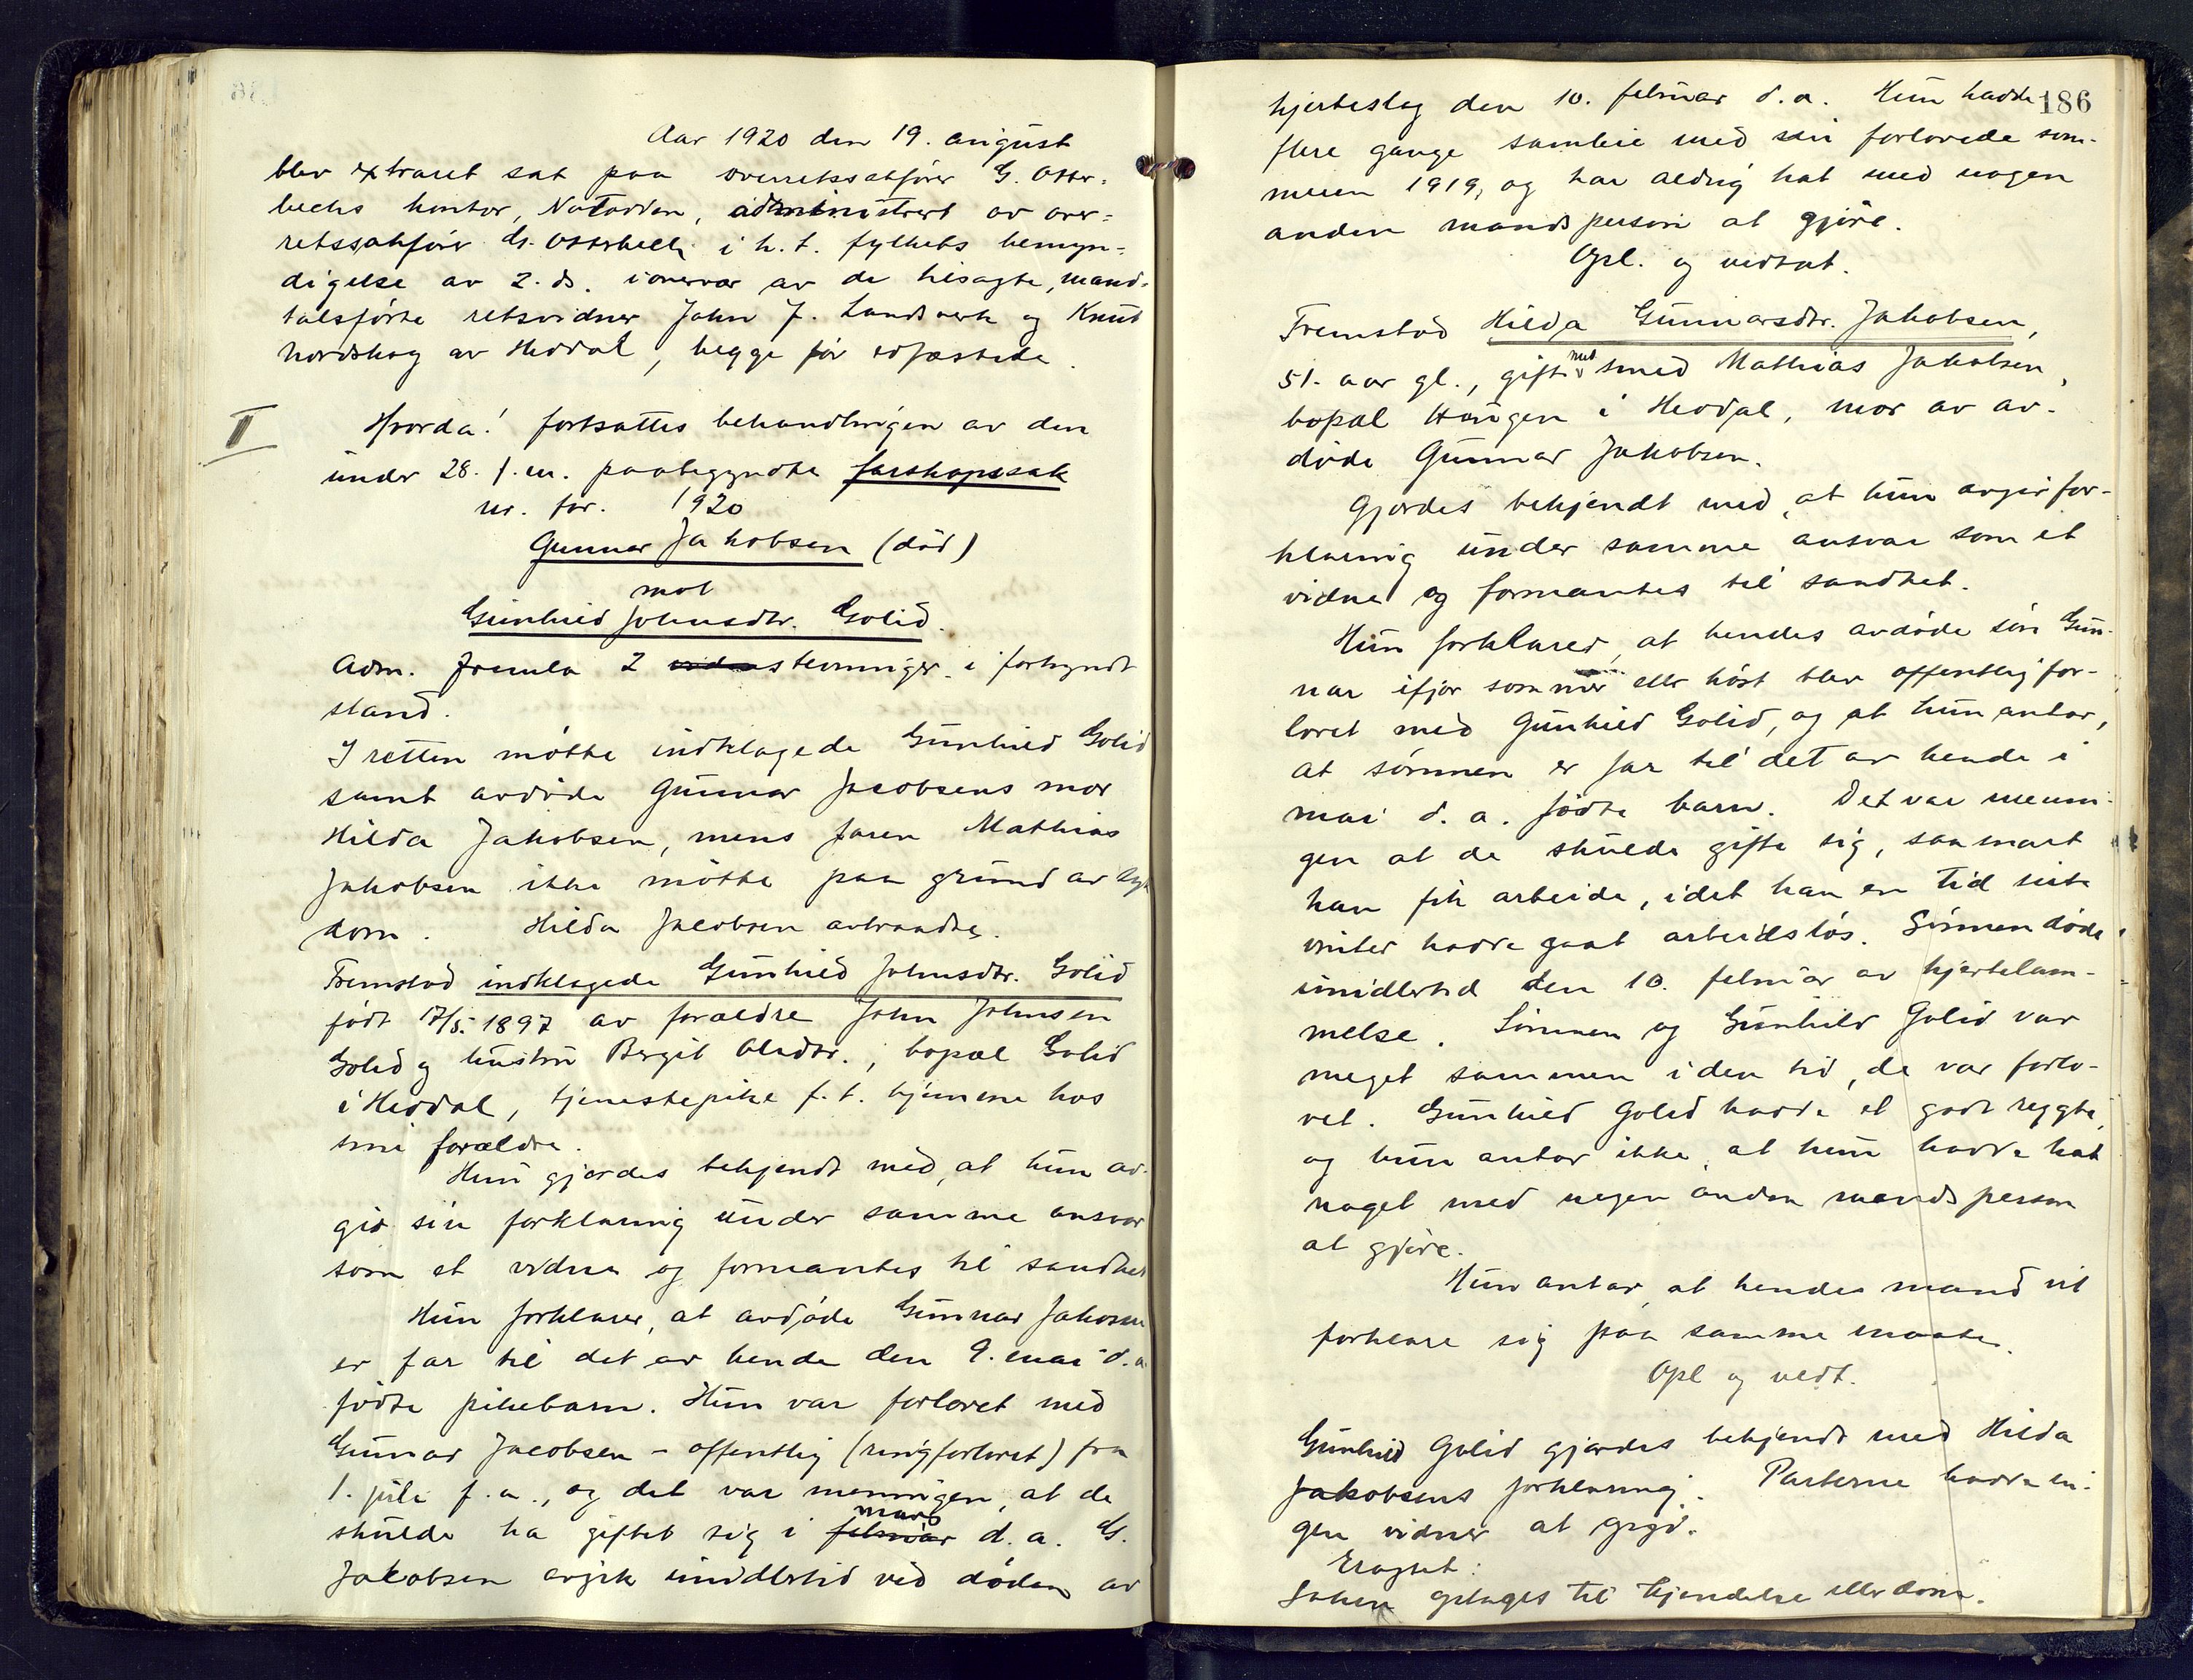 Aar 1920 den 19. august
blev extraret sat paa overretssakfører G. Otter-
becks kontor, Notodden, administrert av over-
retssakfører G. Otterbech i h. t. fylkets bemyn-
digelse av 2. ds. i overvær av de tilsagte, mand-
talsførte retsvidner John J. Landsverk og Knut
Nordskog av Heddal, begge før edfæstede.
II
Hvorda! fortsattes behandlingen av den
under 28. f. m. paabegyndte farskapssak
nr. for. 1920
Gunnar Jakobsen (død)
mot
Gunhild Johnsdtr. Golid.
Adm. fremla 2 stevninger i forkyndt
stand.
I retten møtte indklagede Gunhild Golid
samt avdøde Gunnar Jacobsens mor
Hilda Jakobsen, mens faren Mathias
Jakobsen ikke møtte paa grund av syk
dom. Hilda Jacobsen avtraadte.
Fremstod indklagede Gunhild Johnsdtr. Golid
født 17/5. 1897 av forældre John Johnsen
Golid og hustru Bergit Olsdtr., bopæl Golid
i Heddal, tjenestepike f. t. hjemme hos
sine forældre.
Hun gjordes bekjendt med, at hun av-
gir sin forklaring under samme ansvar
som et vidne og formantes til sandhet
Hun forklarer, at avdøde Gunnar Jakobsen
er far til det av hende den 9. mai d. a.
fødte pikebarn. Hun var forlovet med
Gunnar Jacobsen - offentlig (ringforlovet) fra
1. juli f. a., og det var meningen, at de
mars
skulde ha giftet sig i februar d. a. G.
Jakobsen avgik imidlertid ved døden av
186
hjerteslag den 10. februar d. a. Hun hadde
flere gange samleie med sin forlovede som-
meren 1919, og har aldrig hat med nogen
anden mandsperson at gjøre.
Opl. og vedtat.
Fremstod Hilda Gunnarsdtr. Jakobsen,
51. aar gl., gift med smed Mathias Jakobsen,
bopæl Haugen i Heddal, mor av av-
døde Gunnar Jakobsen.
Gjordes bekjendt med, at hun avgir for-
klaring under samme ansvar som et
vidne og formantes til sandhet.
Hun forklarer, at hendes avdøde søn Gun-
nar ifjor sommer eller høst blev offentlig for-
lovet med Gunhild Golid, og at hun antar,
at sønnen er far til det av hende i
mai d. a. fødte barn. Det var menin-
gen at de skulde gifte sig, saasnart
han fik arbeide, idet han en tid sidste
vinter hadde gaat arbeidsløs. Sønnen døde
imidlertid den 10. februar av hjertelam-
melse. Sønnen og Gunhild Golid var
meget sammen i den tid, de var forlo-
vet. Gunhild Golid hadde et godt rygte,
og hun antar ikke, at hun hadde hat
noget med nogen anden mandsperson
at gjøre.
Hun antar, at hendes mand vil
forklare sig paa samme maate.
Opl og vedt.
Gunhild Golid gjordes bekjendt med Hilda
Jakobsens forklaring. Parterne hadde in-
gen vidner at opgi.
Eragtet:
Saken optages til kjendelse eller dom.